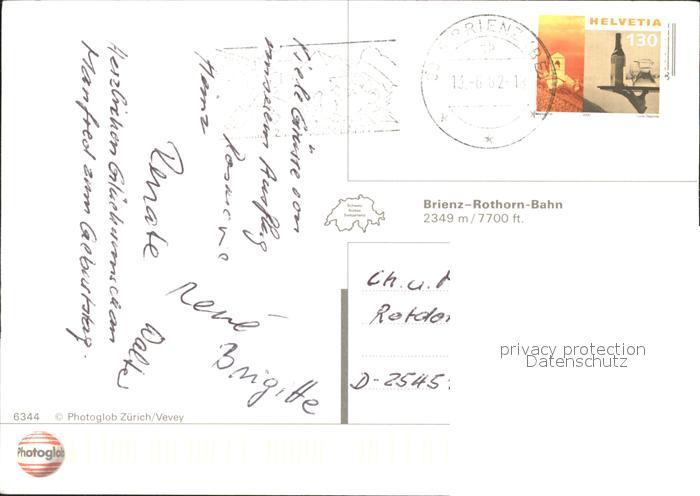 HELVETIA
130
BRIENZ
13-6.02-18
Viele Grüsse von
unserem Ausflug
Heinz Rosmarie
Renate René
Walter
Brigitte
Herzlichen Glückwunsch an
Manfred zum Geburtstag.
Schweiz
Suisse
Switzerland
Brienz–Rothorn–Bahn
2349 m / 7700 ft.
Ch. u.
Rotdor
D-2545
privacy protection
Datenschutz
6344 © Photoglob Zürich/Vevey
Photoglob